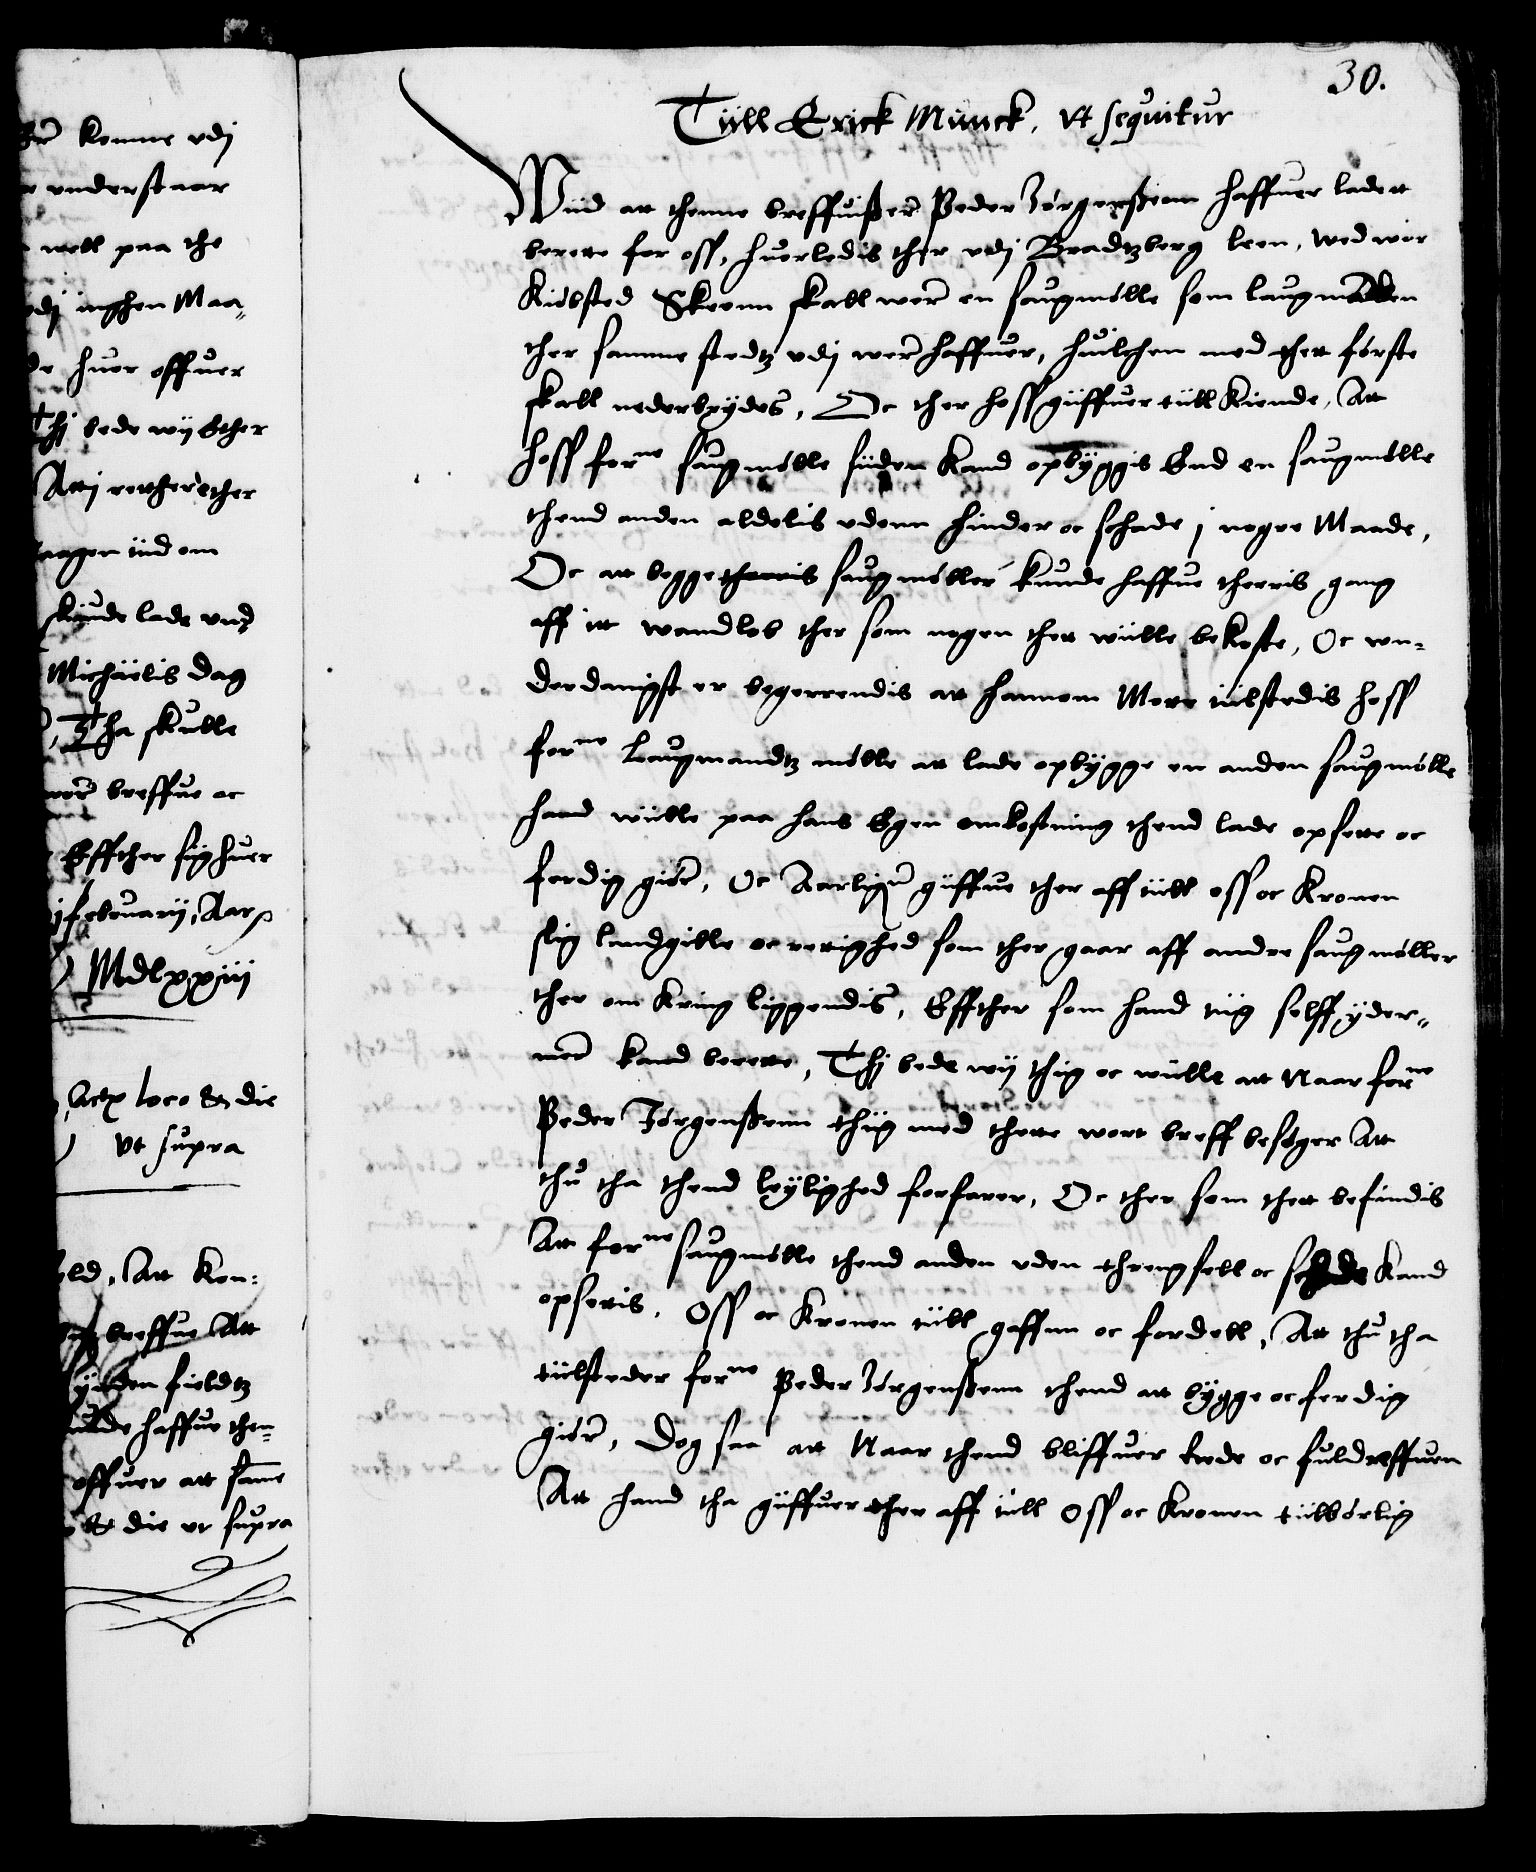 30.
Tiill Erick Munck, Vt sequitur
Wiid at thenne breffuißer Peder Jörgenßenn haffuer ladett
berette for oss, huorledis ther vdj Bradtzberg leen, wed wor
Kiöbsted Skeenn skall wer en saugmölle som laugmanden
ther samme stedtz vdj wer haffuer, huilchen med thet förste
skall nederbrydes, Oc ther hoss giiffuer tiill Kiende, Att
hoss forne saugmölle siiden Kand opbyggis End en saugmölle
thend anden aldelis vdenn hinder oc schade j nogre Maade,
Oc att begge therris saugmöller kunde haffue therris gang
aff itt wandlöb ther som nogen thet wiille bekoste, Oc wn-
derdanigst er begerrendis att hannom Motte tiilstedis hoss
forne Laugmandtz mölle att lade opbygge en anden saugmölle
hand wiille paa hans Egen omkostning thend lade opsette oc
ferdig giöre, Oc Aarligen giiffue ther aff tiill oss oc Kronen
slig landgille oc rettighed som ther gaar aff andre saugmöller
ther om Kring liggendis, Effther som hand tiig selff yder-
mere kand berette, Thj bede wij thig oc wiille att Naar forne
Peder Jörgenßenn thiig med thette wort breff besöger Att
thu tha thend leylighed forfarer, Oc ther som thet befindis
Att forne saugmölle thend anden vden threngsell oc schade Kand
opsettis, Oss oc Kronen tiill gaffnn oc fordell, Att thu tha
tiilsteder forne Peder Jörgenßenn thend att bygge oc ferdig
giöre, Dog saa att Naar thend bliffuer rede oc fuldreffuen
Att hand tha giiffuer ther aff tiill Oss oc Kronen tiilbörlig
komme vdj
vnderstaar
well paa the
inghen Maa-
huer offuer
Thj bede wij Ether
Attj retther ether
iid om
skiude lade vnd
Michaelis dag
Tha skulle
breffue oc
Effther sig huer
februarij, Aar
Mdlxxiii
Actum loco & die
vt supra
Att Kon-
breffue Att
fieldtz
haffue then-
offuer att same
& die vt supra